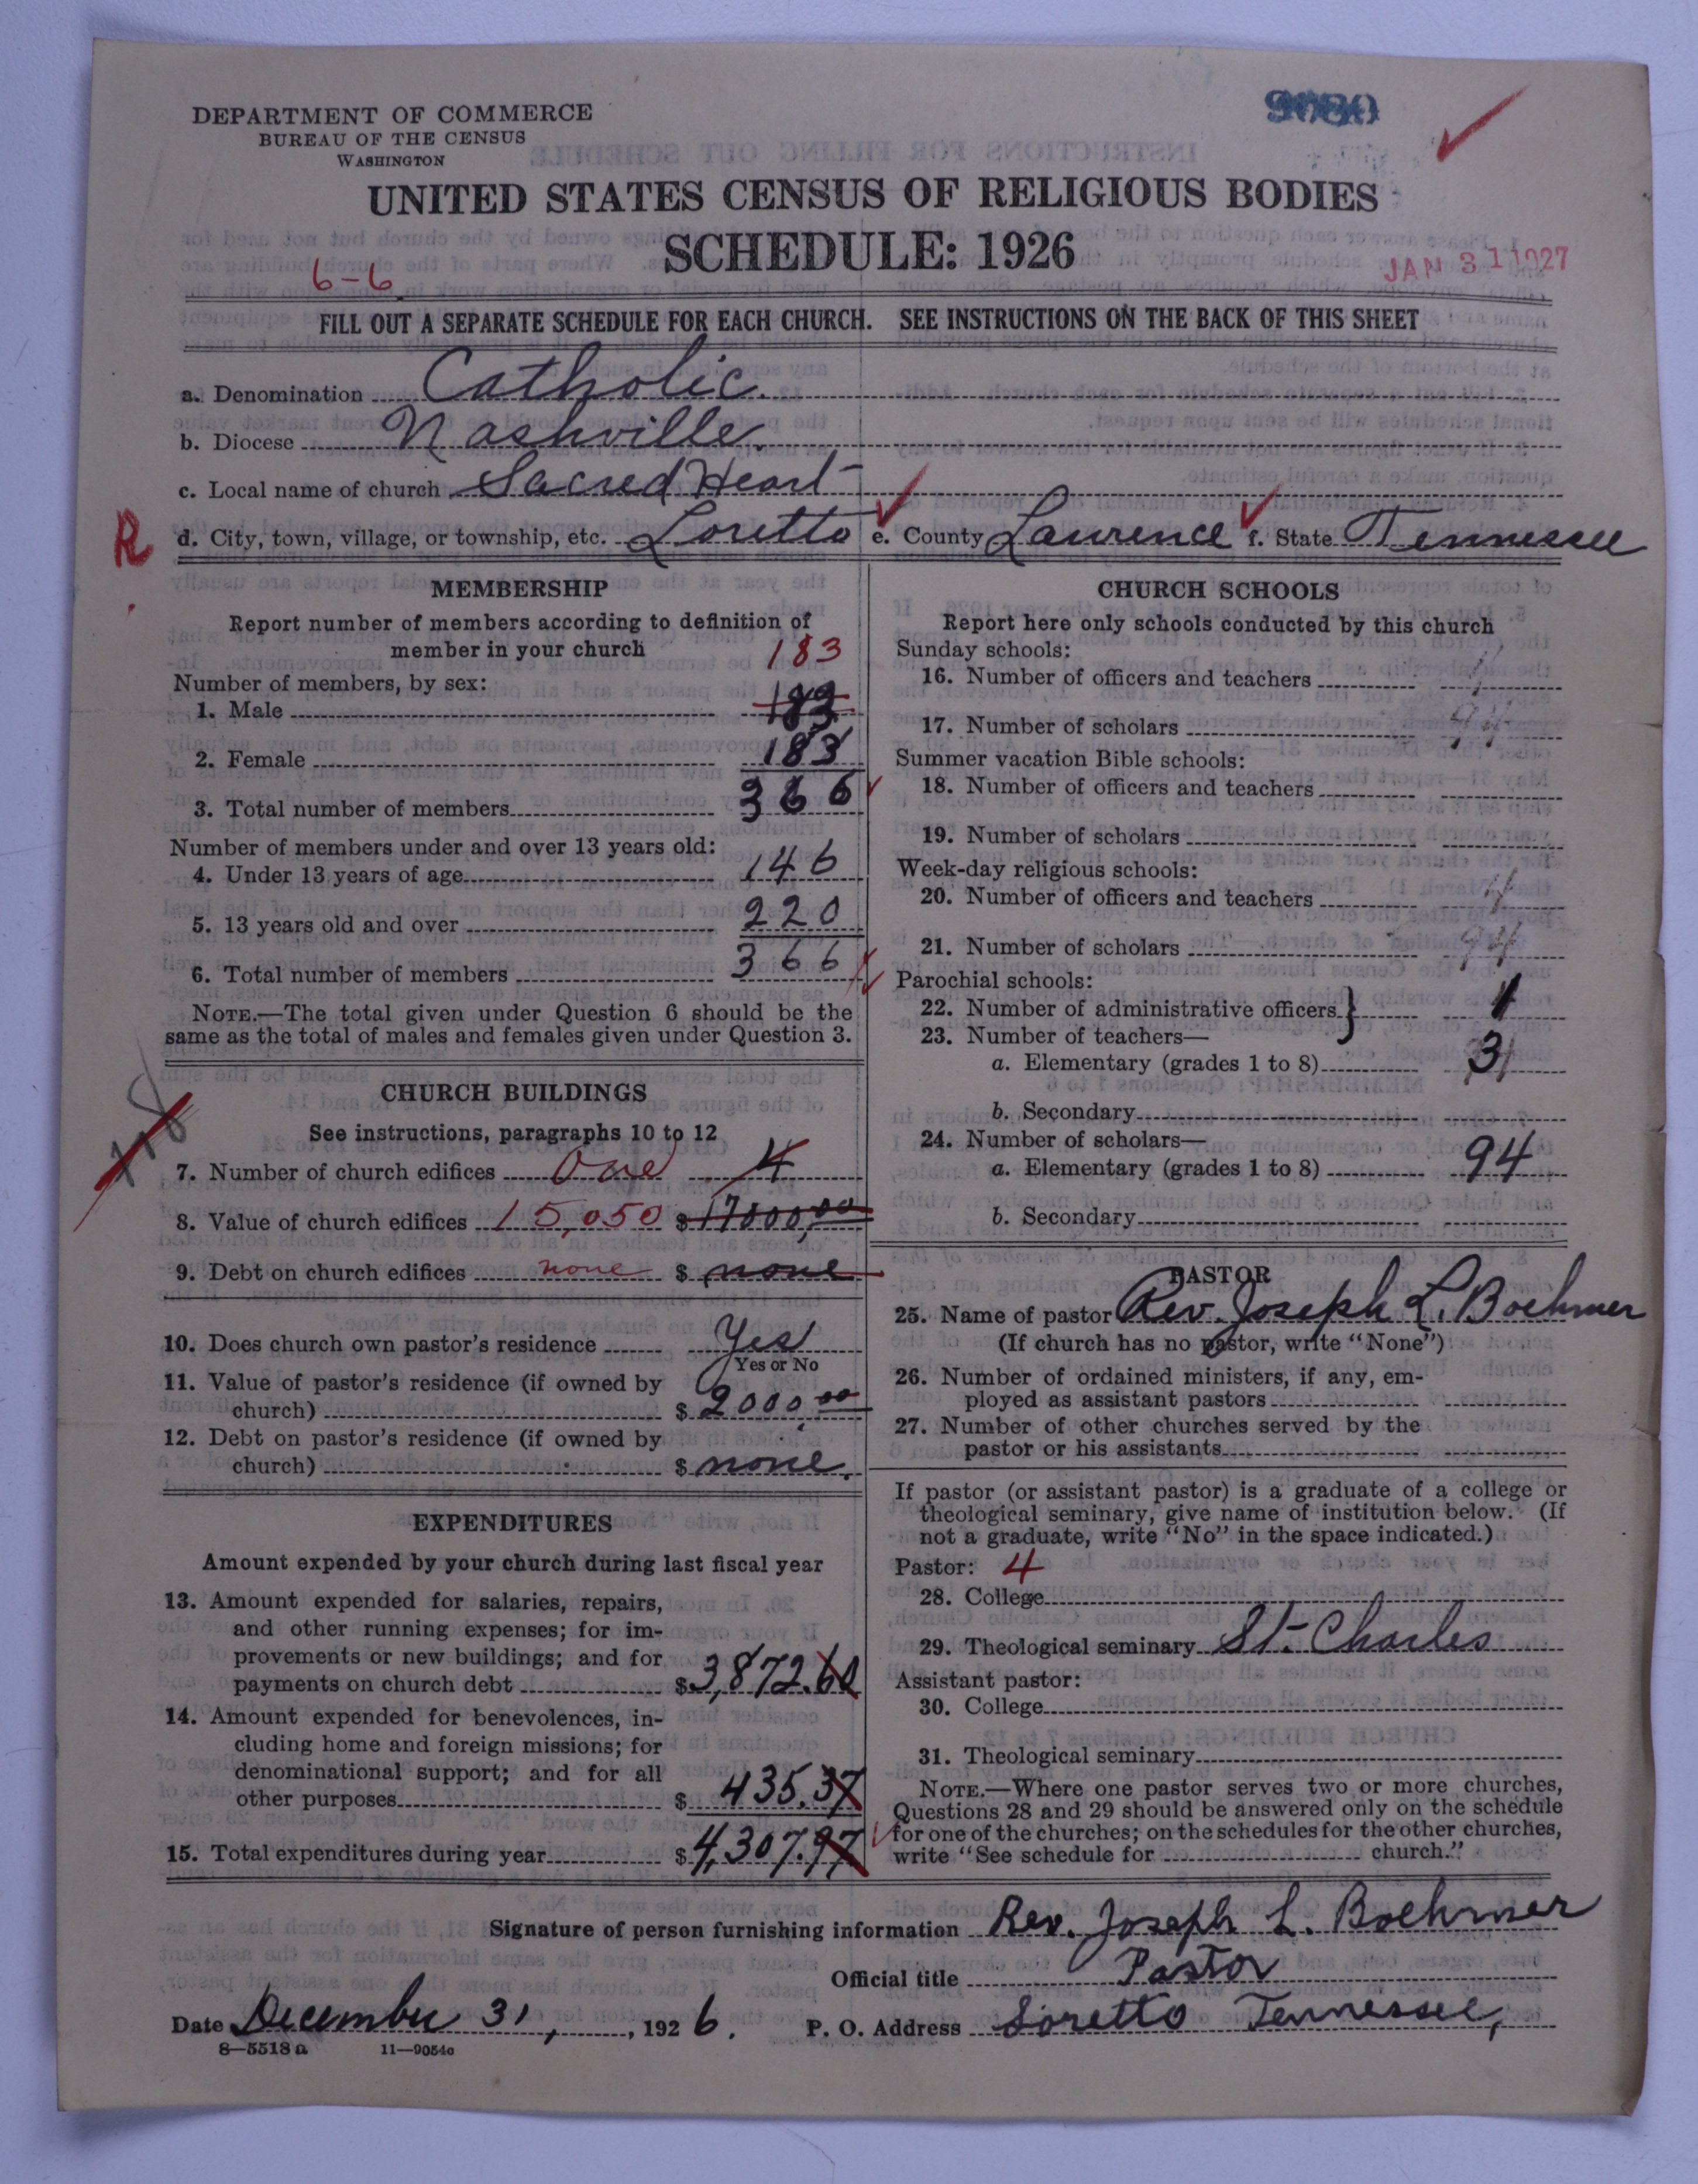 DEPARTMENT OF COMMERCE
BUREAU OF THE CENSUS
WASHINGTON
UNITED STATES CENSUS OF RELIGIOUS BODIES
SCHEDULE: 1926
6-6
JAN 31 1927
FILL OUT A SEPARATE SCHEDULE FOR EACH CHURCH. SEE INSTRUCTIONS ON THE BACK OF THIS SHEET
a. Denomination Catholic.
b. Diocese Nashville.
c. Local name of church Sacred Heart
R d. City, town, village, or township, etc. Loretto e. County Lawrence f. State Tennessee
MEMBERSHIP
Report number of members according to definition of
member in your church
183
Number of members, by sex:
1. Male 183
2. Female 183
3. Total number of members 366
Number of members under and over 13 years old:
4. Under 13 years of age 146
5. 13 years old and over 220
6. Total number of members 366
NOTE.—The total given under Question 6 should be the
same as the total of males and females given under Question 3.
CHURCH BUILDINGS
See instructions, paragraphs 10 to 12
7. Number of church edifices One 4
8. Value of church edifices 15,050 $ 17000,00
9. Debt on church edifices none $ none
10. Does church own pastor's residence Yes
Yes or No
11. Value of pastor's residence (if owned by
church) $ 2000,00
12. Debt on pastor's residence (if owned by
church) $ none.
EXPENDITURES
Amount expended by your church during last fiscal year
13. Amount expended for salaries, repairs,
and other running expenses; for im-
provements or new buildings; and for
payments on church debt $ 3,872.60
14. Amount expended for benevolences, in-
cluding home and foreign missions; for
denominational support; and for all
other purposes $ 435.37
15. Total expenditures during year $ 4,307.97
CHURCH SCHOOLS
Report here only schools conducted by this church
Sunday schools:
16. Number of officers and teachers
17. Number of scholars 94
Summer vacation Bible schools:
18. Number of officers and teachers
19. Number of scholars
Week-day religious schools:
20. Number of officers and teachers 4
21. Number of scholars 94
Parochial schools:
22. Number of administrative officers 1
23. Number of teachers—
a. Elementary (grades 1 to 8) 3
b. Secondary
24. Number of scholars—
a. Elementary (grades 1 to 8) 94
b. Secondary
PASTOR
25. Name of pastor Rev. Joseph L. Boehmer
(If church has no pastor, write "None")
26. Number of ordained ministers, if any, em-
ployed as assistant pastors
27. Number of other churches served by the
pastor or his assistants
If pastor (or assistant pastor) is a graduate of a college or
theological seminary, give name of institution below. (If
not a graduate, write "No" in the space indicated.)
Pastor: 4
28. College
29. Theological seminary St. Charles
Assistant pastor:
30. College
31. Theological seminary
NOTE.—Where one pastor serves two or more churches,
Questions 28 and 29 should be answered only on the schedule
for one of the churches; on the schedules for the other churches,
write "See schedule for church."
Signature of person furnishing information Rev. Joseph L. Boehmer
Official title Pastor
Date December 31, , 1926. P. O. Address Loretto Tennessee,
8—5518 a 11—9054c